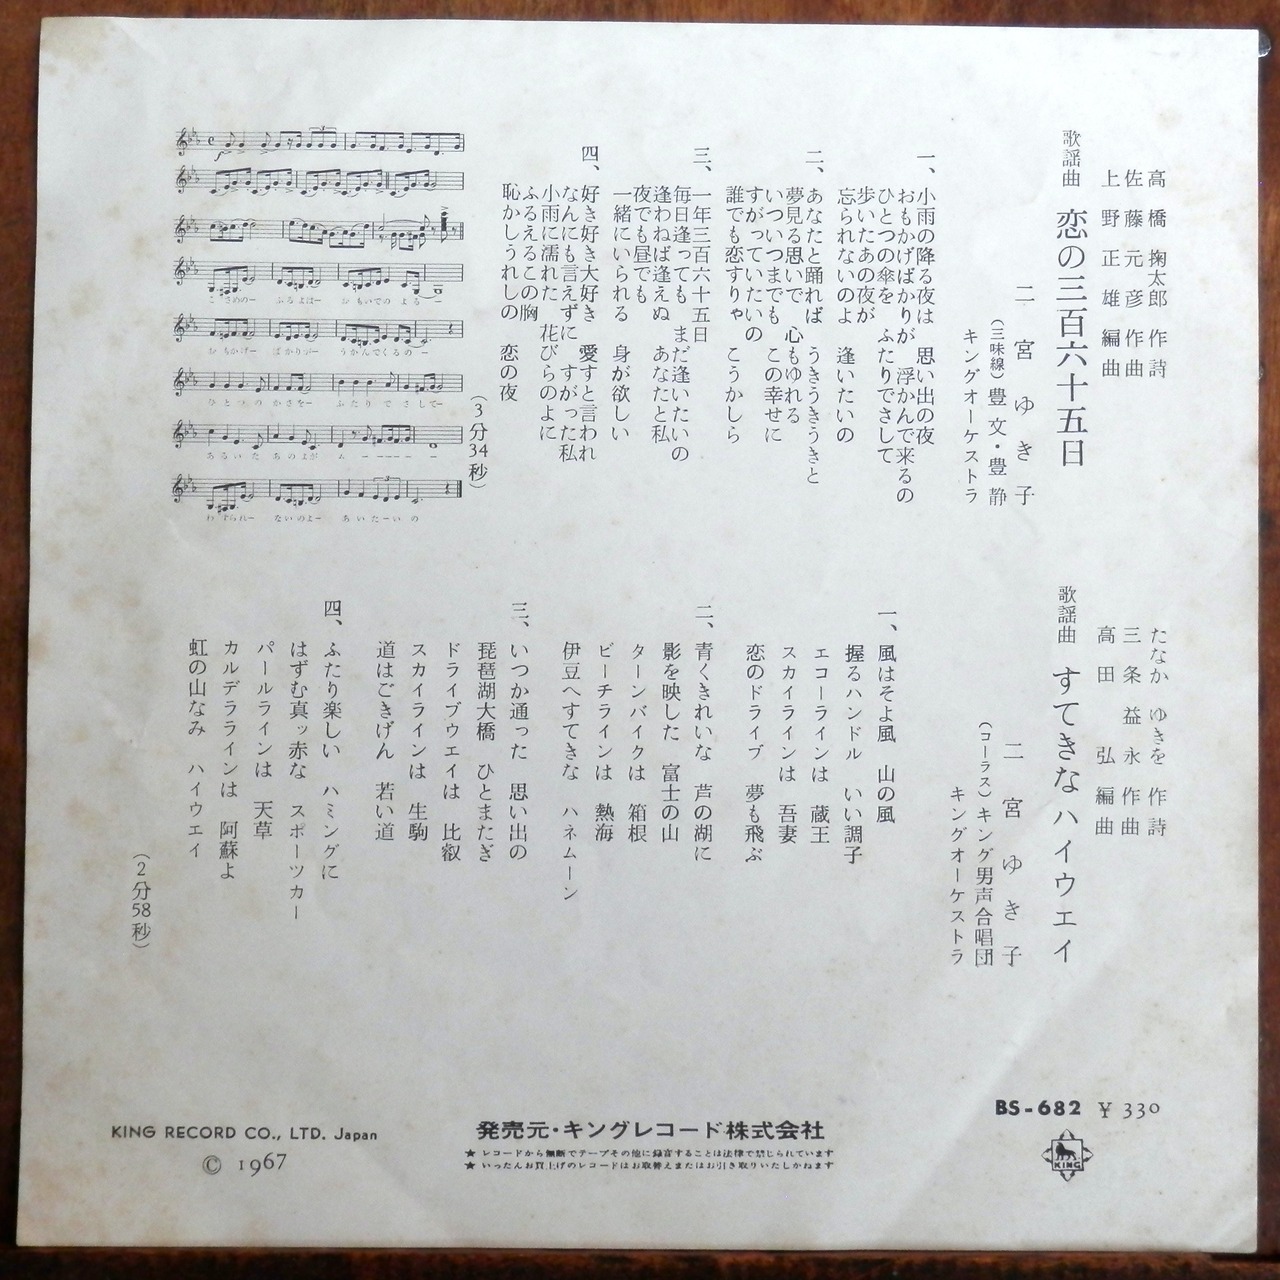 高橋掬太郎 作詩
佐藤元彦 作曲
上野正雄 編曲
歌謡曲 恋の三百六十五日
二宮ゆき子
(三味線)豊文・豊静
キングオーケストラ
一、小雨の降る夜は 思い出の夜
おもかげばかりが 浮かんで来るの
ひとつの傘を ふたりでさして
歩いたあの夜が
忘られないのよ 逢いたいの
二、あなたと踊れば うきうきうきと
夢見る思いで 心もゆれる
いついつまでも この幸せに
すがっていたいの
誰でも恋すりゃ こうかしら
三、一年三百六十五日
毎日逢っても まだ逢いたいの
逢わねば逢えぬ あなたと私
夜でも昼でも
一緒にいられる 身が欲しい
四、好き好き大好き 愛すと言われ
なんにも言えずに すがった私
小雨に濡れた 花びらのよに
ふるえるこの胸
恥かしうれしの 恋の夜
(3分34秒)
こさめのー ふるよはー おもいでの よるー
おもかげー ばかりがー うかんでくるのー
ひとつの かさをー ふたりで さしてー
あるいた あのよが
わすられー ないのよー あいたーいの
たなかゆきを 作詩
三条益永 作曲
高田弘 編曲
歌謡曲 すてきなハイウェイ
二宮ゆき子
(コーラス)キング男声合唱団
キングオーケストラ
一、風はそよ風 山の風
握るハンドル いい調子
エコーラインは 蔵王
スカイラインは 吾妻
恋のドライブ 夢も飛ぶ
二、青くきれいな 芦の湖に
影を映した 富士の山
ターンパイクは 箱根
ビーチラインは 熱海
伊豆へすてきな ハネムーン
三、いつか通った 思い出の
琵琶湖大橋 ひとまたぎ
ドライブウエイは 比叡
スカイラインは 生駒
道はごきげん 若い道
四、ふたり楽しい ハミングに
はずむ真ッ赤な スポーツカー
パールラインは 天草
カルデララインは 阿蘇よ
虹の山なみ ハイウエイ
(2分58秒)
BS-682 ¥330
KING
KING RECORD CO., LTD. Japan
© 1967
発売元・キングレコード株式会社
★レコードから無断でテープその他に録音することは法律で禁じられています
★いったんお買上げのレコードはお取替えまたはお引き取りいたしかねます